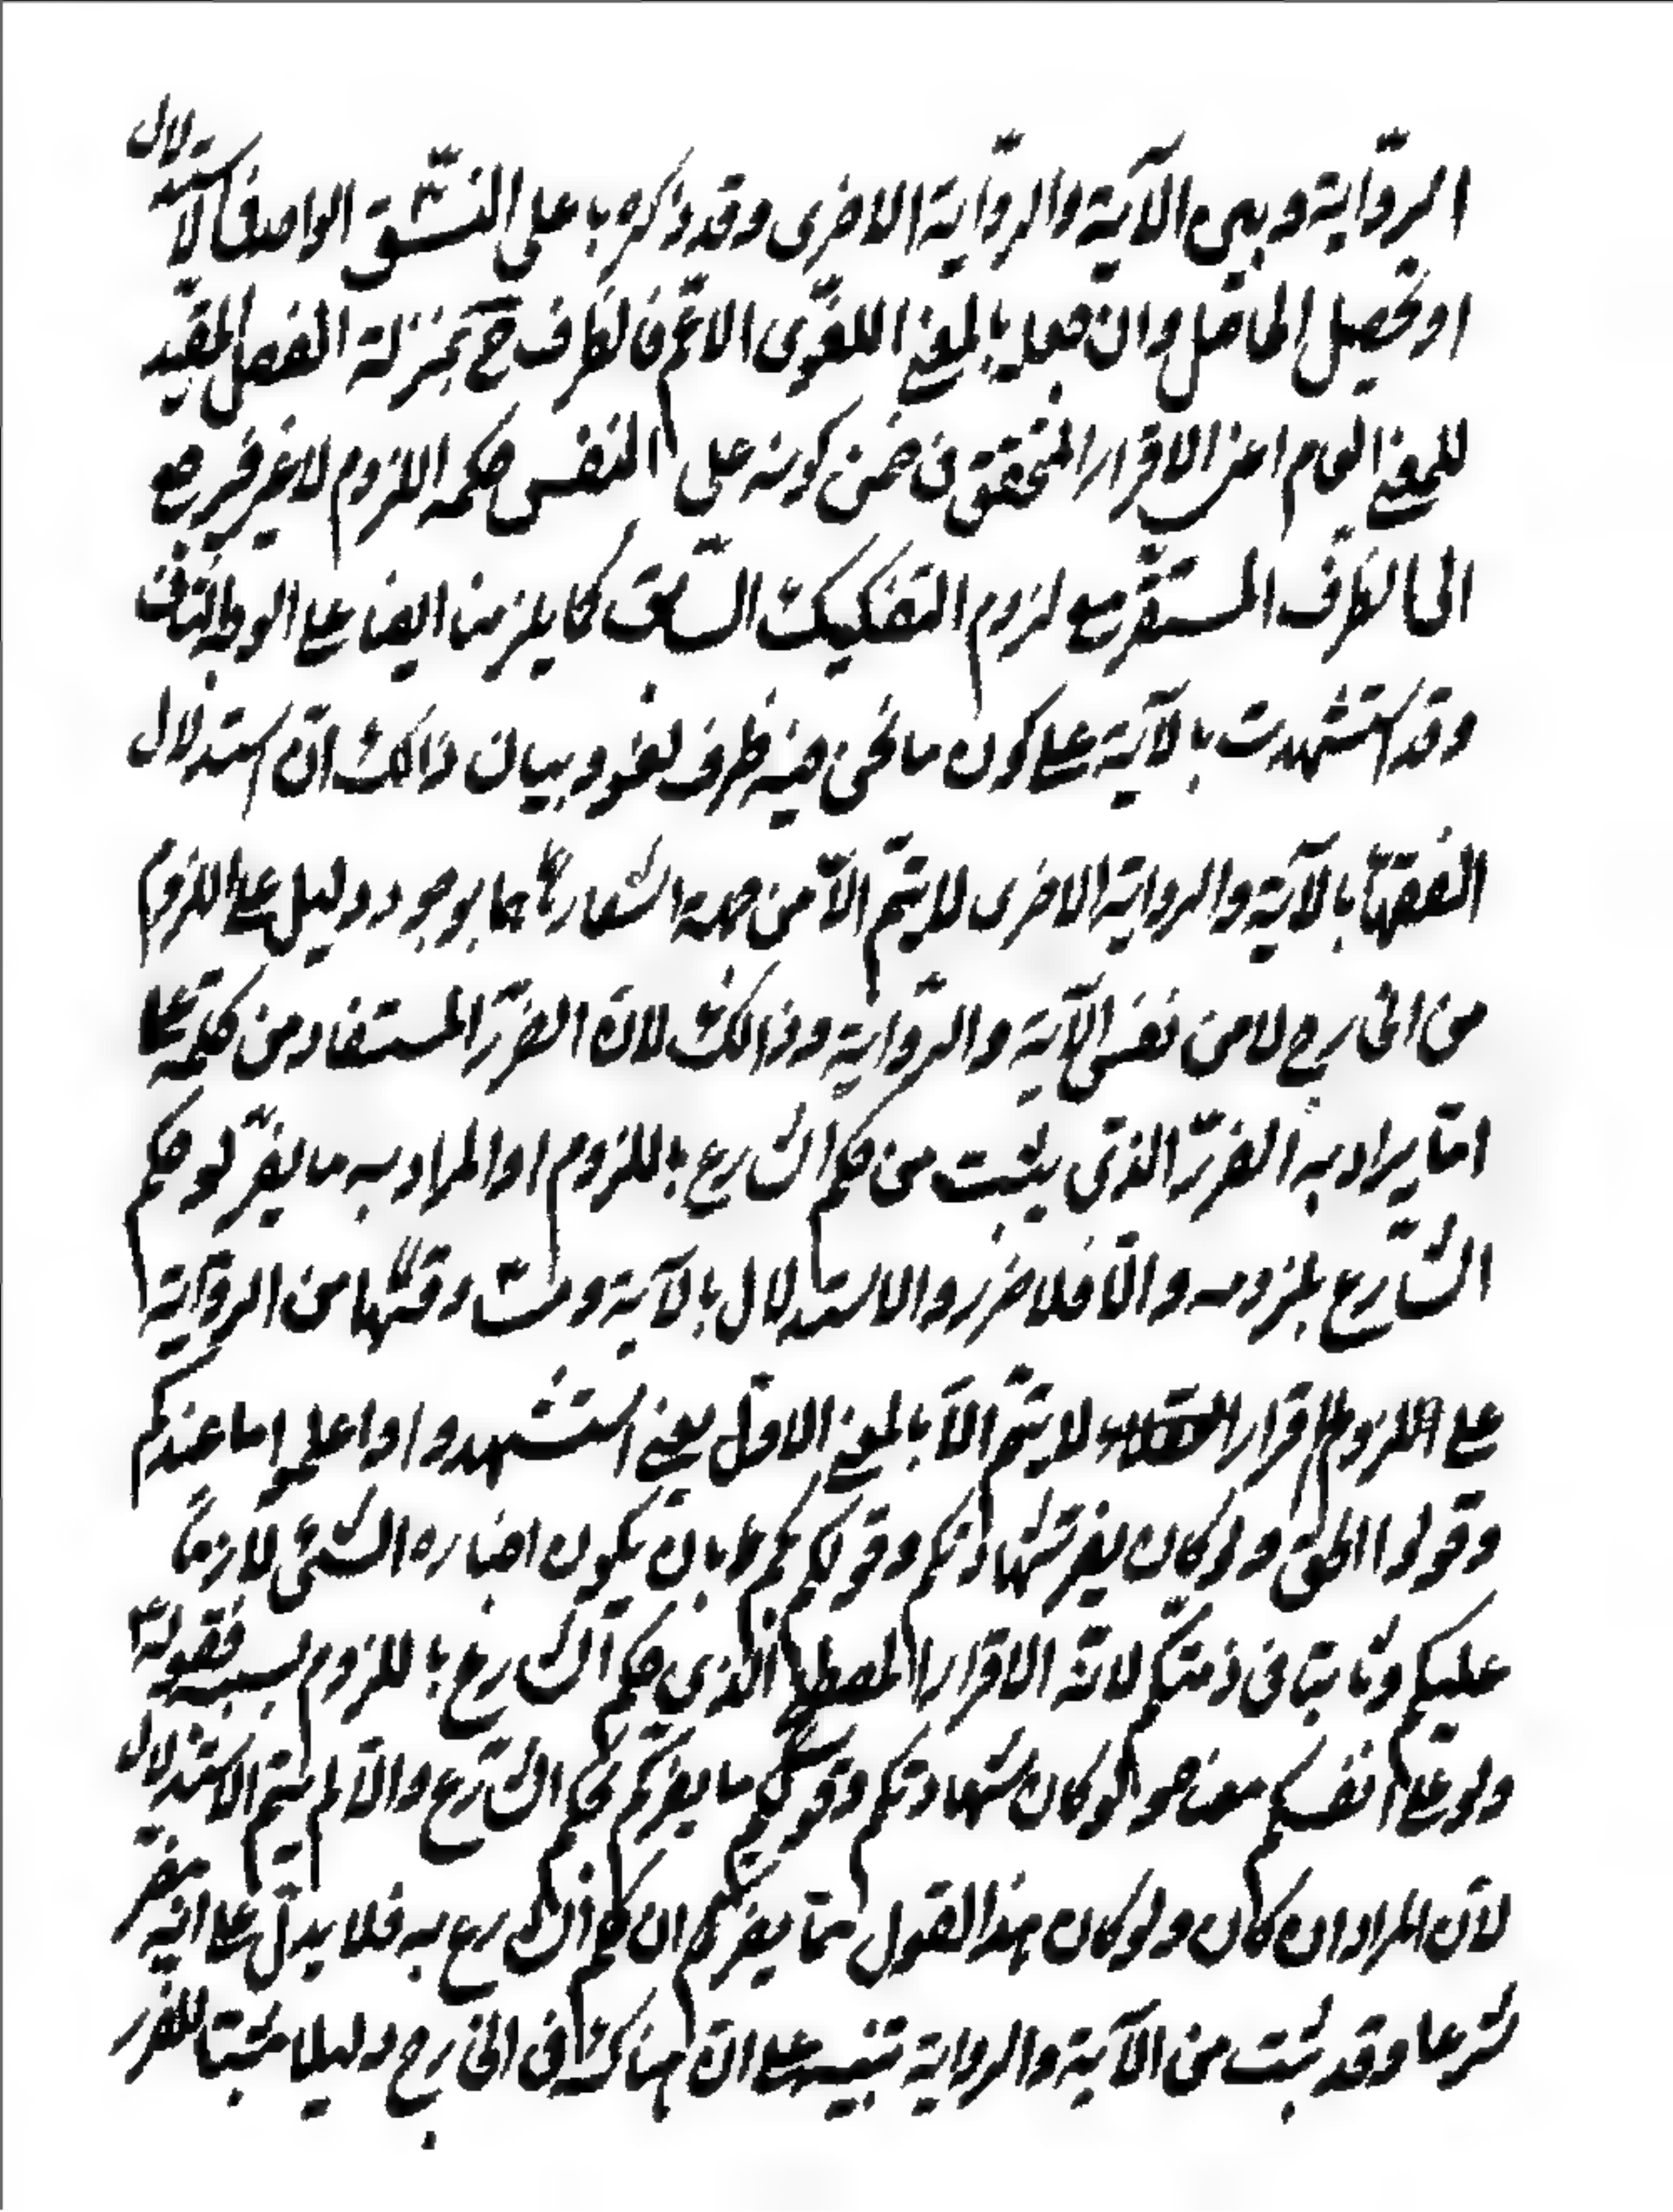 الرّواية وبين الآية والرّواية الاخرى وقد ذكره با على النسّق الواحد فالاستدلال
او تحصيل الحاصل وان جعله بالمعنى اللغوّى الاعّم فالظرف ح بمنزلة الفصل المقيّد
للمعنى العام اعنى الاقرار المتحقق فى ضمن كونه على النفس حكمه اللزوم لا غير فيرجع
الى الظرف المستقرّ مع لزوم التفكيك السّابق كما يلزمنا ايضا على الوجه الثانى
وقد استشهدت بالآية على كون ما نحن فيه ظرف لغو وبيان ذالك انّ استدلال
الفقهاّ بالآية والرواية الاخرى لا يتمّ الاّ من جهة اشعارهما بوجود دليل على اللزوم
من الخارج لا من نفس الآية والرّواية وذالك لانّ الضررّ المستفاد من كلمة على
امّا يراد به الضررّ الذى يثبت من حكم الشارع باللزوم او المراد به ما يضرّ لو حكم
الشّارع بلزومه والّا فلا ضرر والاستدلال بالآية ومشارقتها من الرواية
على اللزوم اقرار لا يتمّ الاّ بالمعنى الاول يعنى استشهدوا واعلموا ما عندكم
وقولوا الحق ولو كان يضر شهادتكم وقولكم بكم بان يكون اخباره الشئ لازماً
عليكم وثابتا فى ذمتكم لانّه الاقرار المصطلح الذى حكم الشارع باللزوم بسببه فقوله
ولو على انفسكم معناه ولو كان شهادتكم وقولكم ما يضركم بحكم الشّارع والّا لم يتم الاستدلال
لانّ المراد ان كان ولو كان هذا القول ممّا يضركم ان حكم الشارع به فلا يدلّ على انه مضر
شرعا وقد ثبت من الآية والرواية تنبيه على انّ هناك فى الخارج دليلا مثبتا للضرر